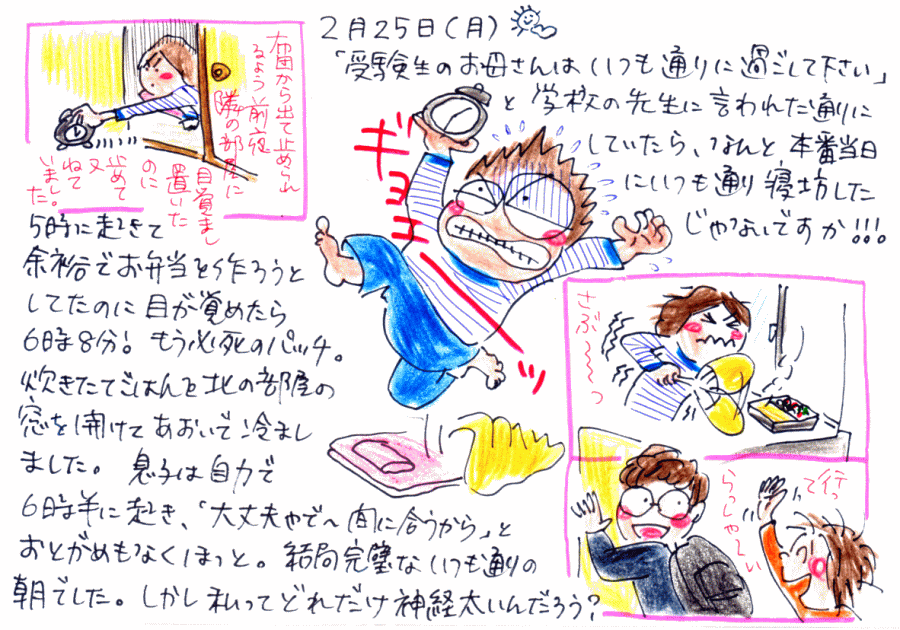 2月25日(月)
「受験生のお母さんはいつも通りに過ごして下さい」
と学校の先生に言われた通りに
していたら、なんと本番当日
にいつも通り寝坊した
じゃないですか!!!
布団から出て止められ
るよう前夜
隣の部屋に
目覚まし
置いた
のに
止めて
又
ねて
いました。
ギョエーッ
5時に起きて
余裕でお弁当を作ろうと
してたのに目が覚めたら
6時8分!もう必死のパッチ。
炊きたてごはんを北の部屋の
窓を開けてあおいで冷まし
ました。息子は自力で
6時半に起き、「大丈夫やで〜間に合うから」と
おとがめもなくほっと。結局完璧ないつも通りの
朝でした。しかし私ってどれだけ神経太いんだろう?
さぶ〜〜〜っ
行って
らっしゃーい